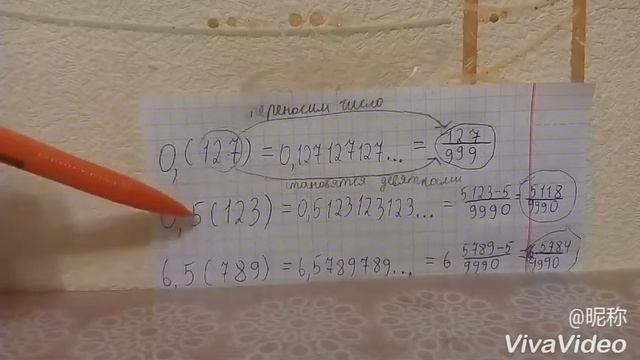 переносим число
0,(127) = 0,127127127... = 127/999
становятся девятками
0,5(123) = 0,5123123123... = 5123-5/9990 = 5118/9990
6,5(789) = 6,5789789... = 6 5789-5/9990 = 6 5784/9990
@昵称
VivaVideo